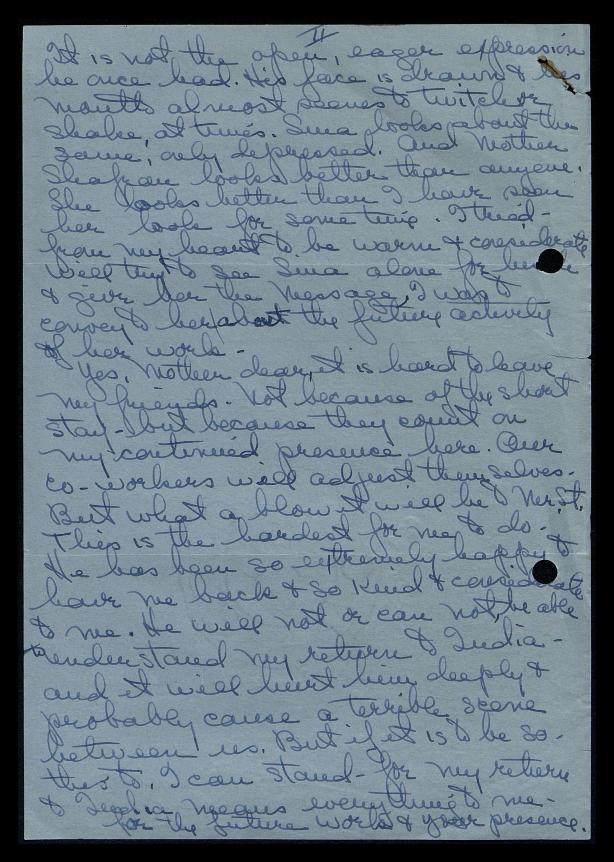 II
It is not the open, eager expression
he once had. His face is drawn & his
mouth almost seems to twitch or
shake, at times. Sina looks about the
same, only depressed. And Mother
Shafran looks better than anyone.
She looks better than I have seen
her look for some time. I tried -
from my heart to be warm & considerate
Will try to see Sina alone for
& give her the message, I was to
convey to her about the future activity
of her work -
Yes, Mother dear, it is hard to leave
my friends. Not because of the short
stay - but because they count on
my continued presence here. Our
co-workers will adjust themselves.
But what a blow it will be to Mr. St.
This is the hardest for me to do.
He has been so extremely happy to
have me back & so kind & considerate
to me. He will not or can not, be able
to understand my return to India -
and it will hurt him deeply &
probably cause a terrible scene
between us. But if it is to be so -
this to, I can stand - for my return
to India means everything to me -
for the future works & your presence.